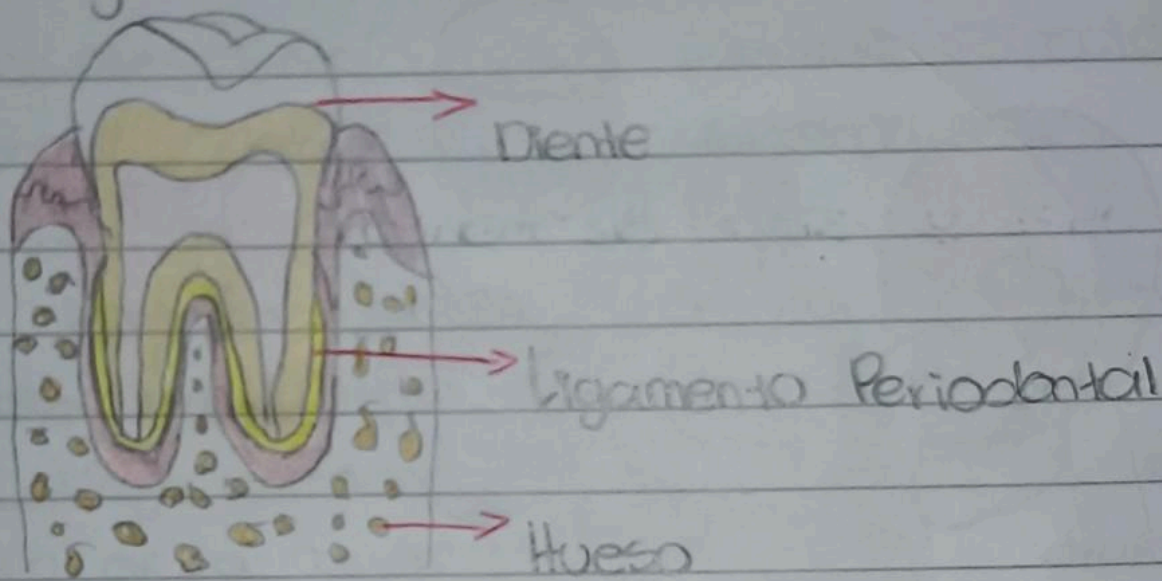 Diente
Ligamento Periodontal
Hueso